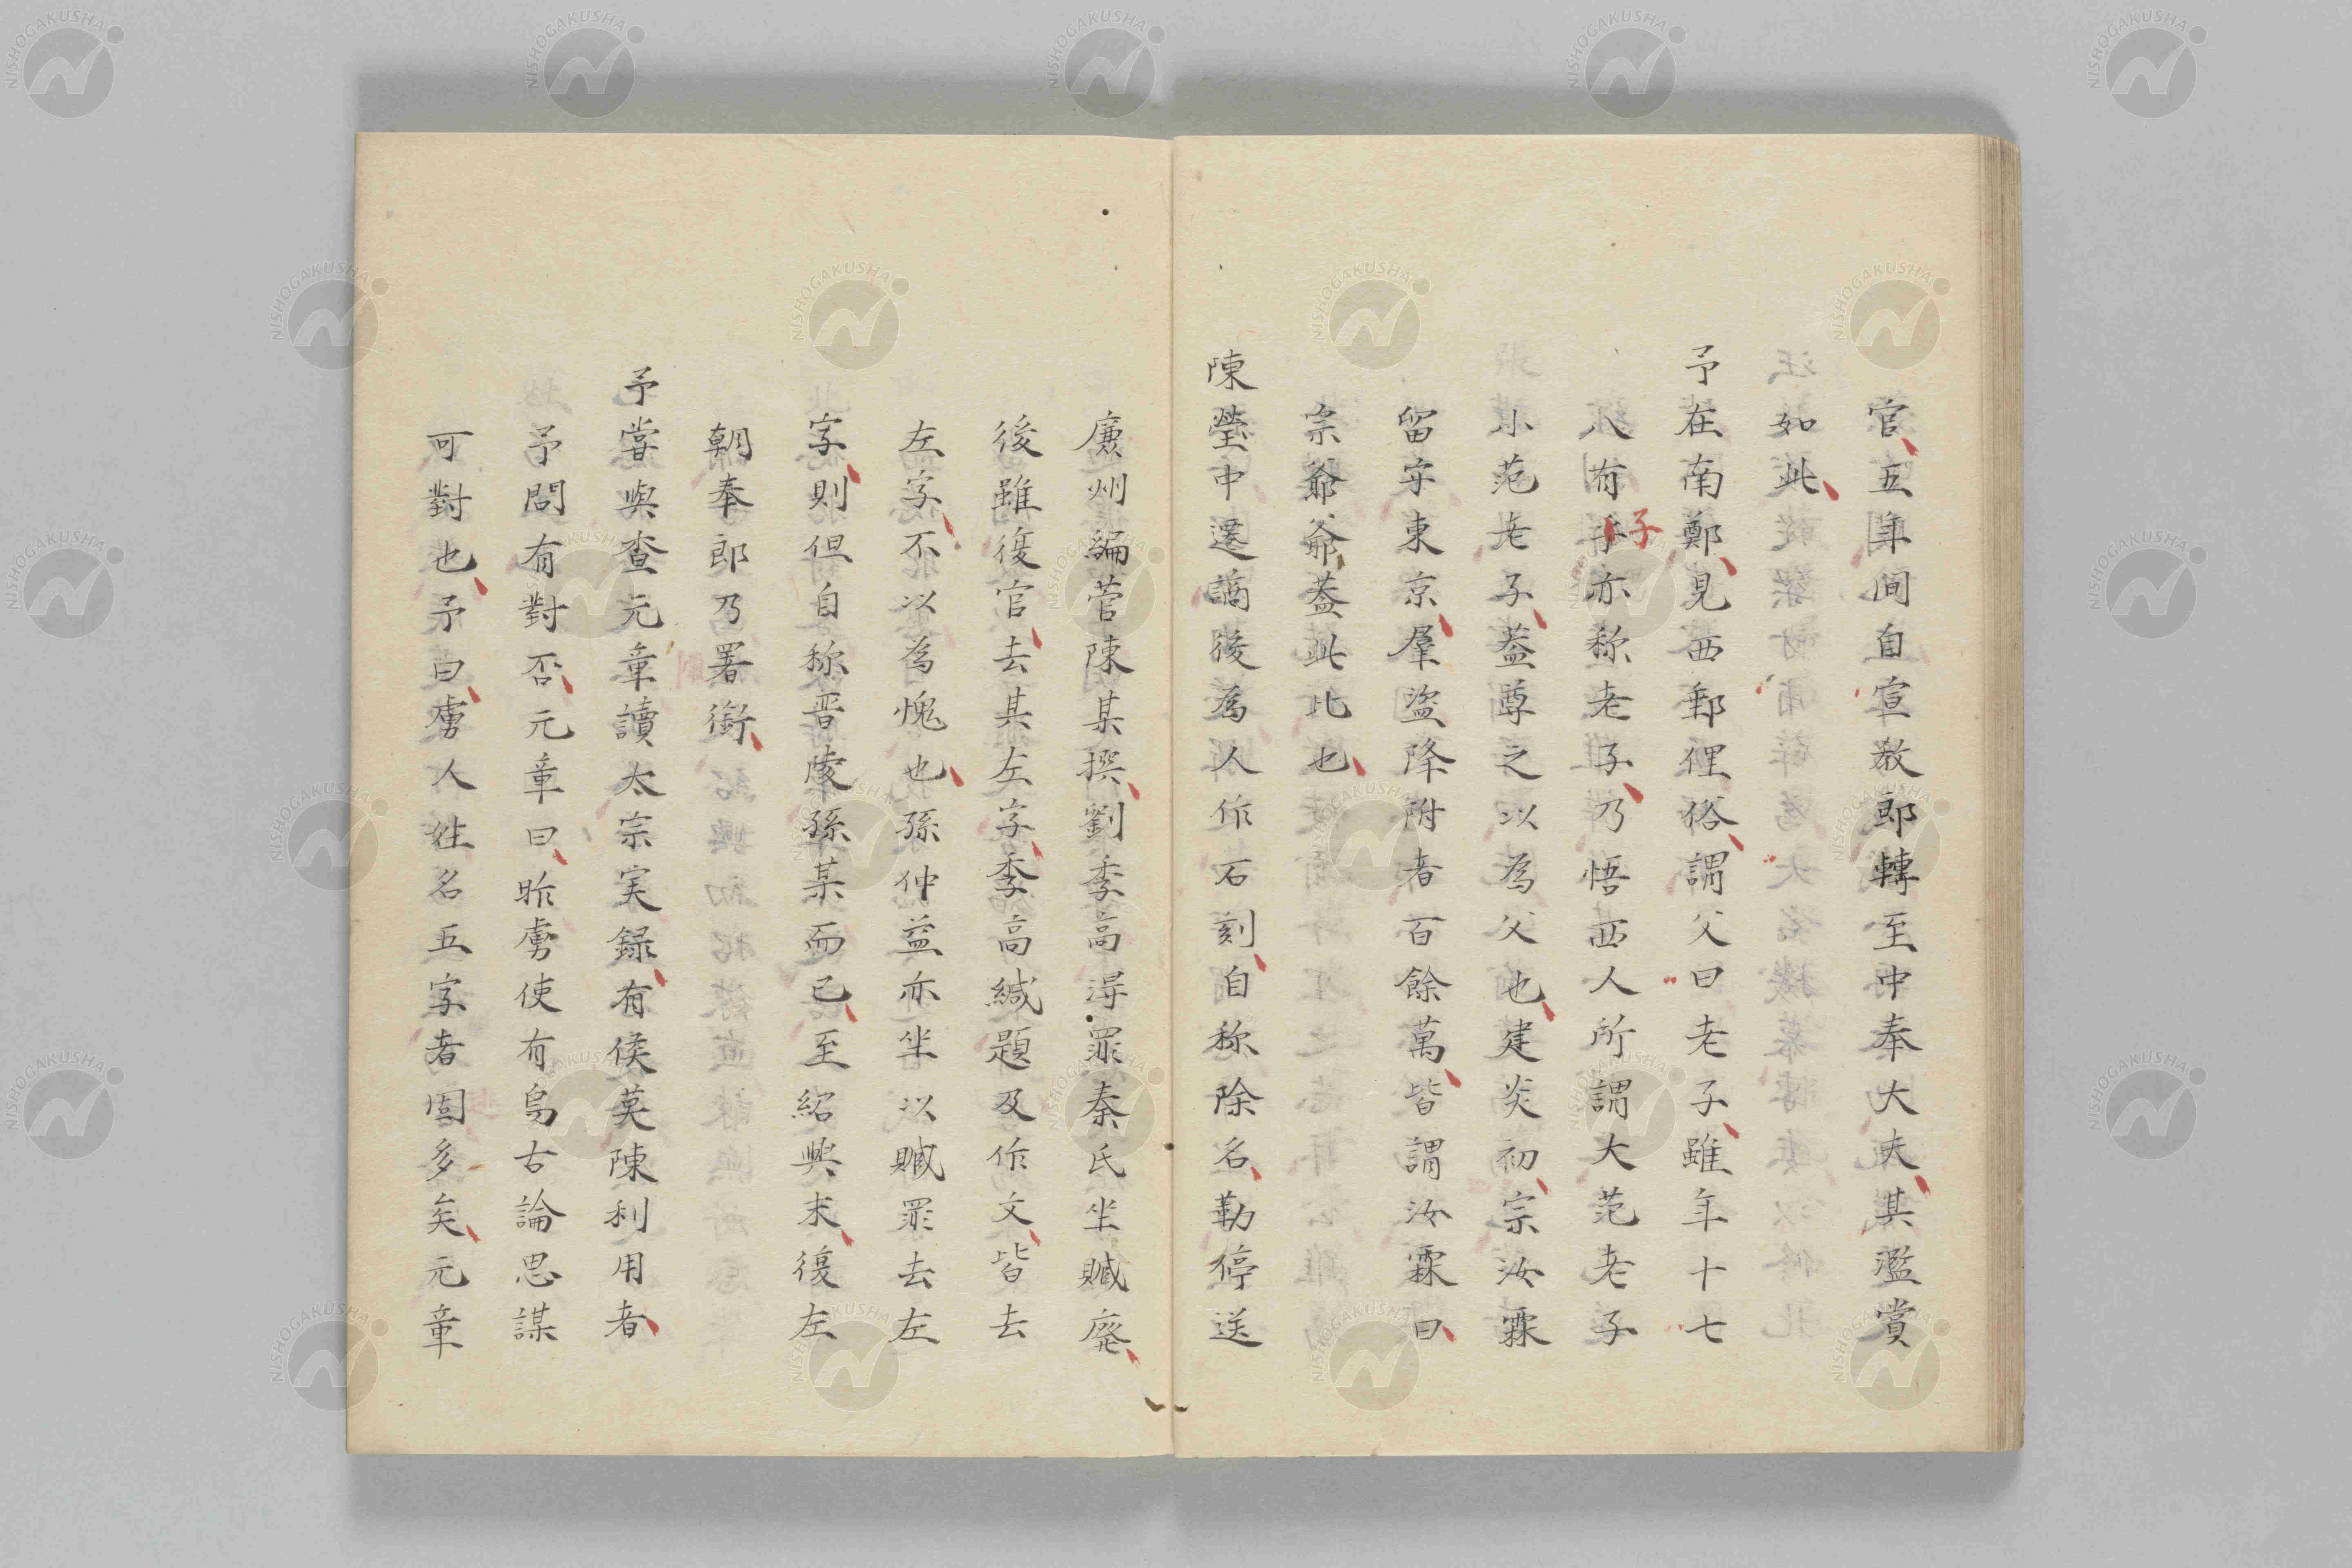 官五年間自宣教郎轉至中奉大夫其濫賞
如此
予在南鄭見西郵俚俗謂父曰老子雖年十七
八有手亦称老子乃悟西人所謂大范老子
子
小范老子蓋尊之以為父也建炎初宗汝霖
留守東京羣盗降附者百餘萬皆謂汝霖曰
宗爺爺蓋此比也
陳瑩中遷謫後為人作石刻自称除名勤停送
廉州編菅陳某撰劉季高得罪秦氏坐贓廃
後雖復官去其左字季高緘題及作文皆去
左字不以為愧也孫仲益亦坐以贓罪去左
字則但自称晋陵孫某而已至紹興末復左
朝奉郎乃署銜
予嘗與查元章讀太宗実録有侯莫陳利用者
予問有對否元章曰昨虜使有烏古論思謀
可對也予曰虜人姓名五字者固多矣元章
NISHOGAKUSHA